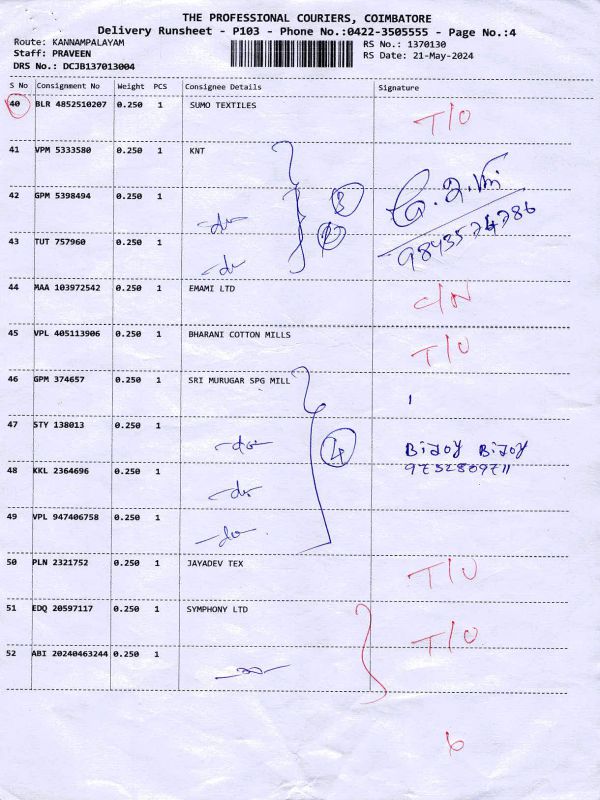 THE PROFESSIONAL COURIERS, COIMBATORE
Delivery Runsheet - P103 - Phone No.:0422-3505555 - Page No.:4
Route: KANNAMPALAYAM
RS No.: 1370130
Staff: PRAVEEN
RS Date: 21-May-2024
DRS No.: DCJB137013004
S No Consignment No Weight PCS Consignee Details Signature
40 BLR 4852510207 0.250 1 SUMO TEXTILES T/O
41 VPM 5333580 0.250 1 KNT
42 GPM 5398494 0.250 1 -do-
43 TUT 757960 0.250 1 -do
3
9843574786
44 MAA 103972542 0.250 1 EMAMI LTD C/N
45 VPL 405113906 0.250 1 BHARANI COTTON MILLS T/O
46 GPM 374657 0.250 1 SRI MURUGAR SPG MILL
47 STY 138013 0.250 1 -do- 4 BiJOY BiJOY
9752809711
48 KKL 2364696 0.250 1 -do-
49 VPL 947406758 0.250 1 -do-
50 PLN 2321752 0.250 1 JAYADEV TEX T/O
51 EDQ 20597117 0.250 1 SYMPHONY LTD T/O
52 ABI 20240463244 0.250 1 -do-
6